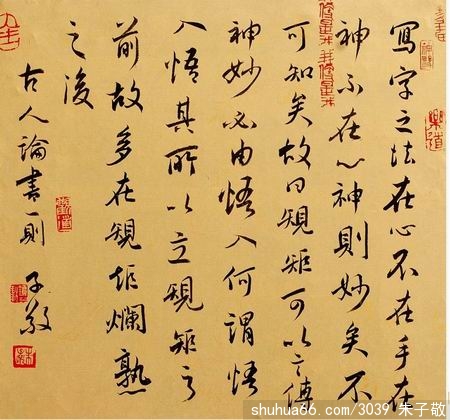 寫字之法在心不在手在
神不在心神則妙矣不
可知矣故曰規矩可以言傳
神妙必由悟入何謂悟
入悟其所以立規矩之
前故多在規矩爛熟
之後
古人論書一則 子敬
樂道
shuhua66.com/3039,朱子敬